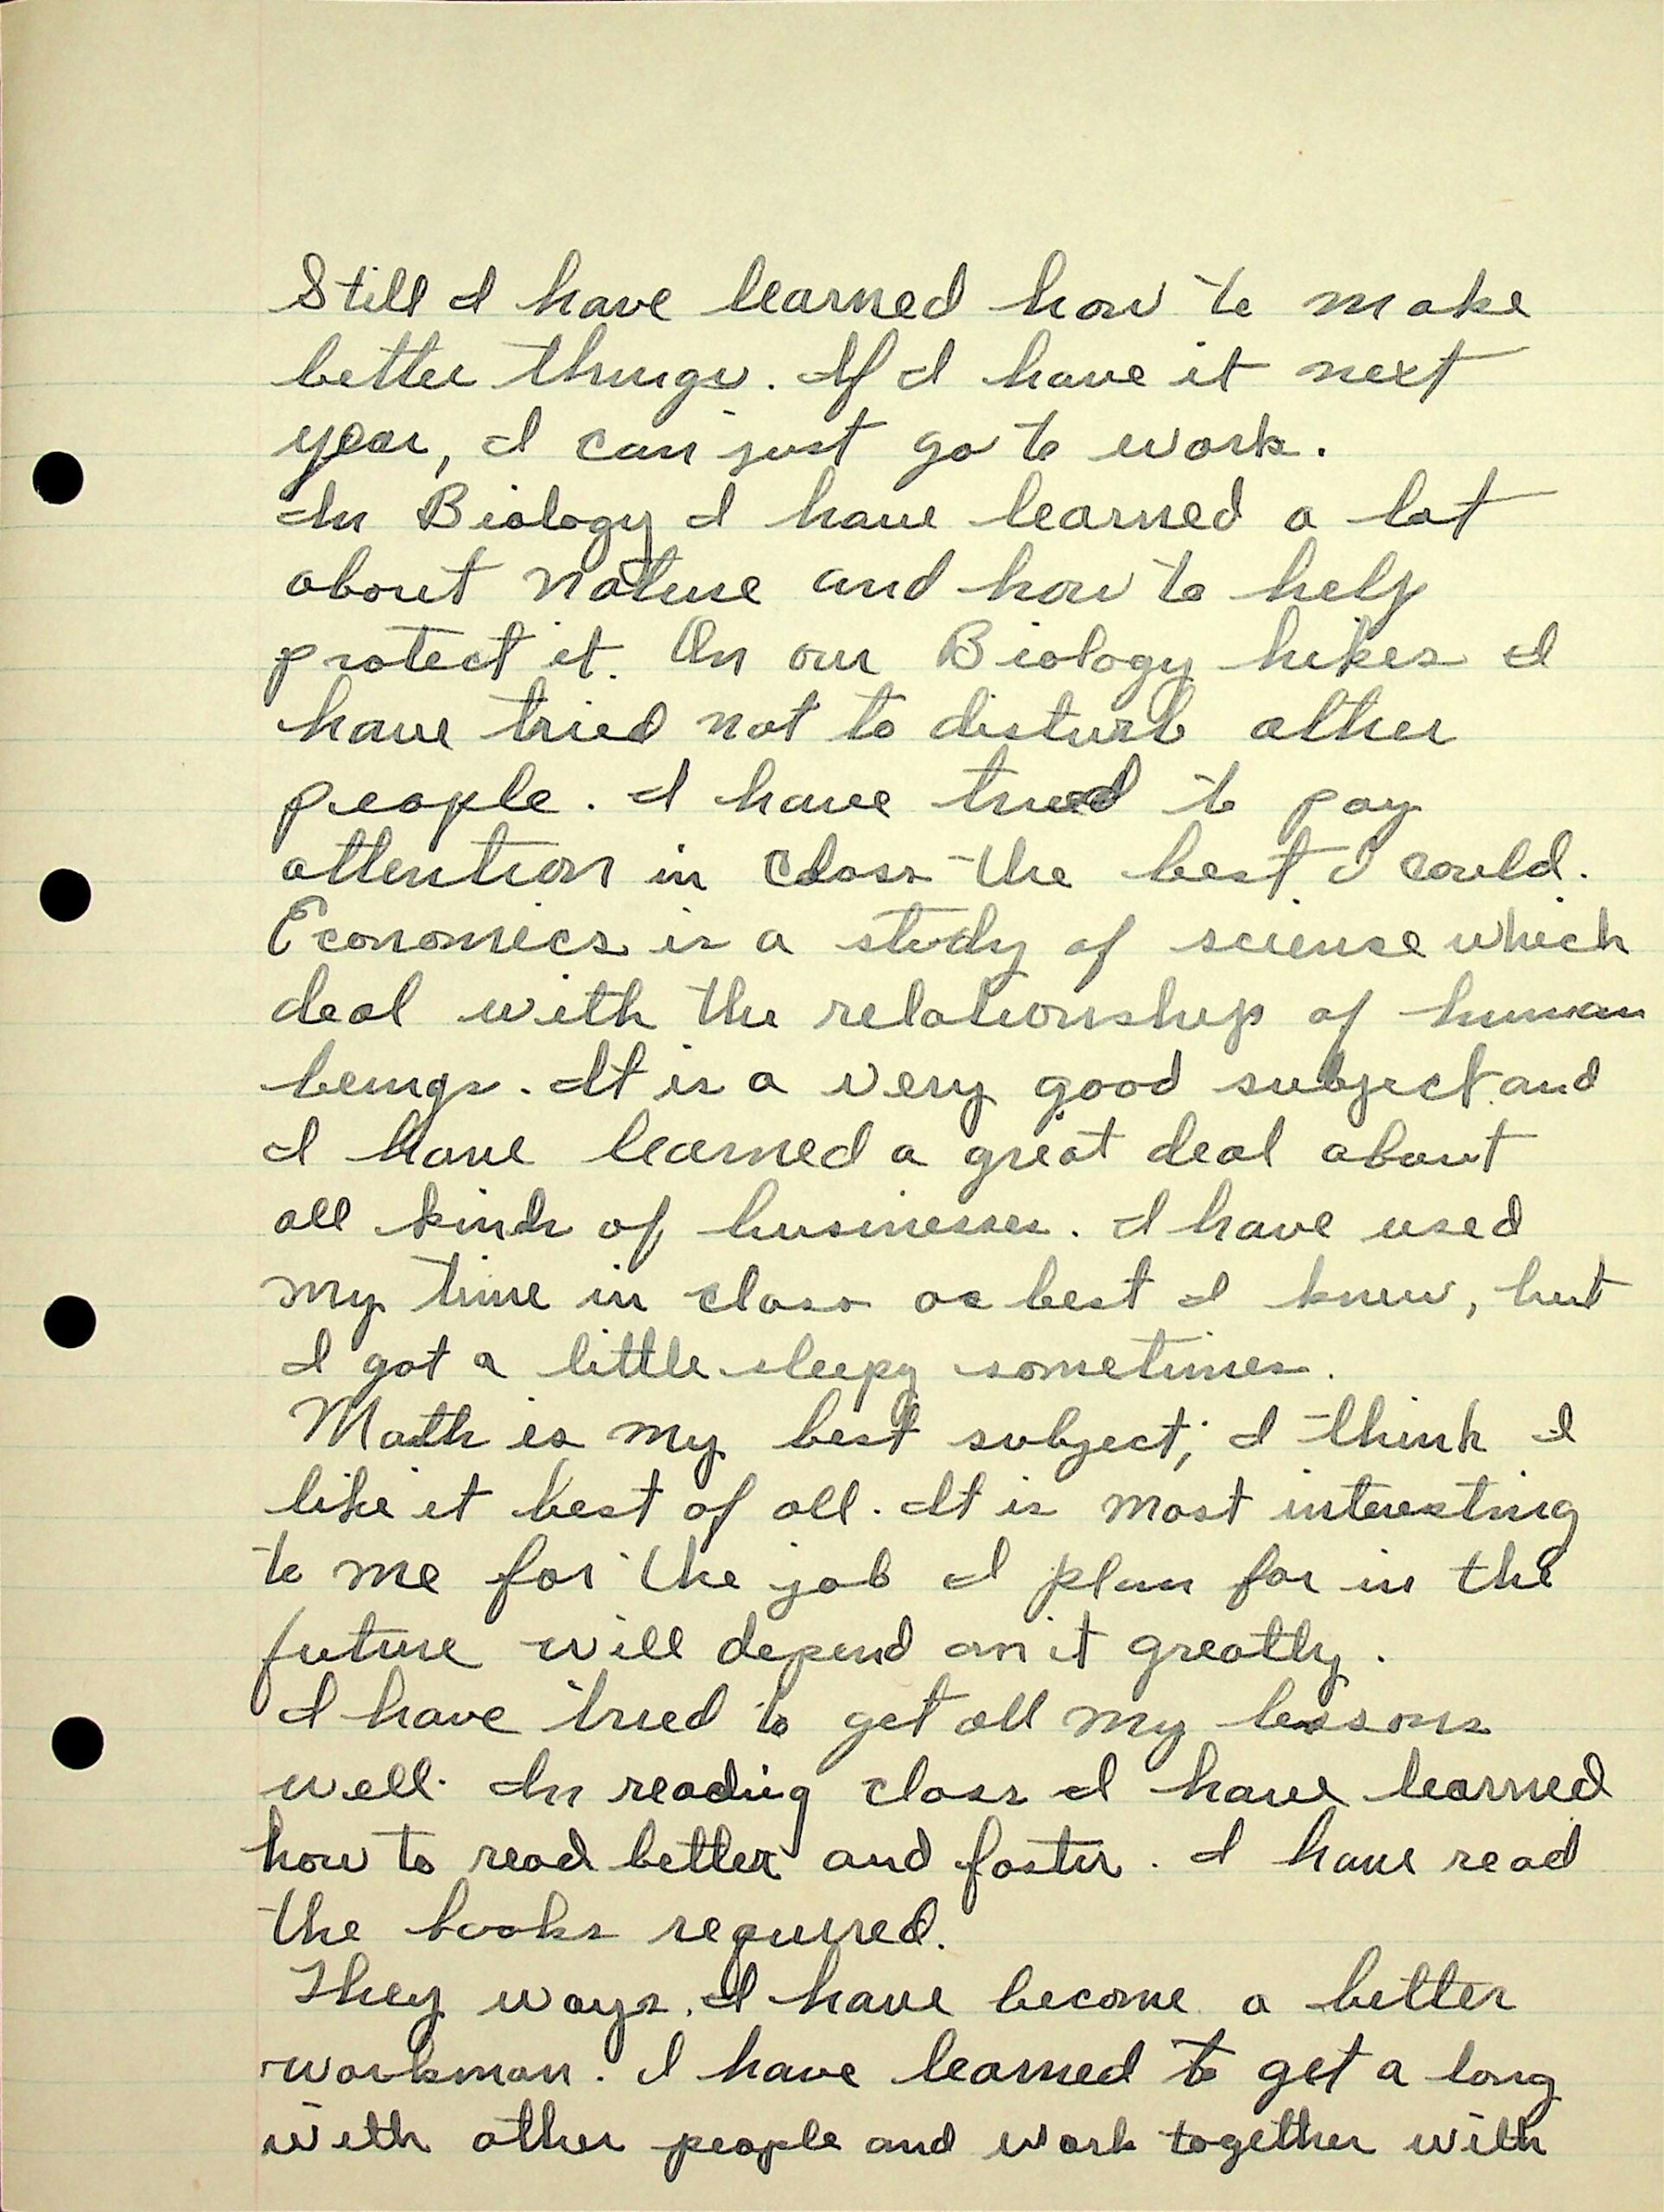 Still I have learned how to make
better things. If I have it next
year, I can just go to work.
In Biology I have learned a lot
about nature and how to help
protect it. On our Biology hikes I
have tried not to disturb other
people. I have tried to pay
attention in class the best I could.
Economics is a study of science which
deal with the relationship of human
beings. It is a very good subject and
I have learned a great deal about
all kinds of businesses. I have used
my time in class as best I knew, but
I got a little sleepy sometimes.
Math is my best subject; I think I
like it best of all. It is most interesting
to me for the job I plan for in the
future will depend on it greatly.
I have tried to get all my lessons
well. In reading class I have learned
how to read better and faster. I have read
the books required.
They ways. I have become a better
workman. I have learned to get a long
with other people and work together with